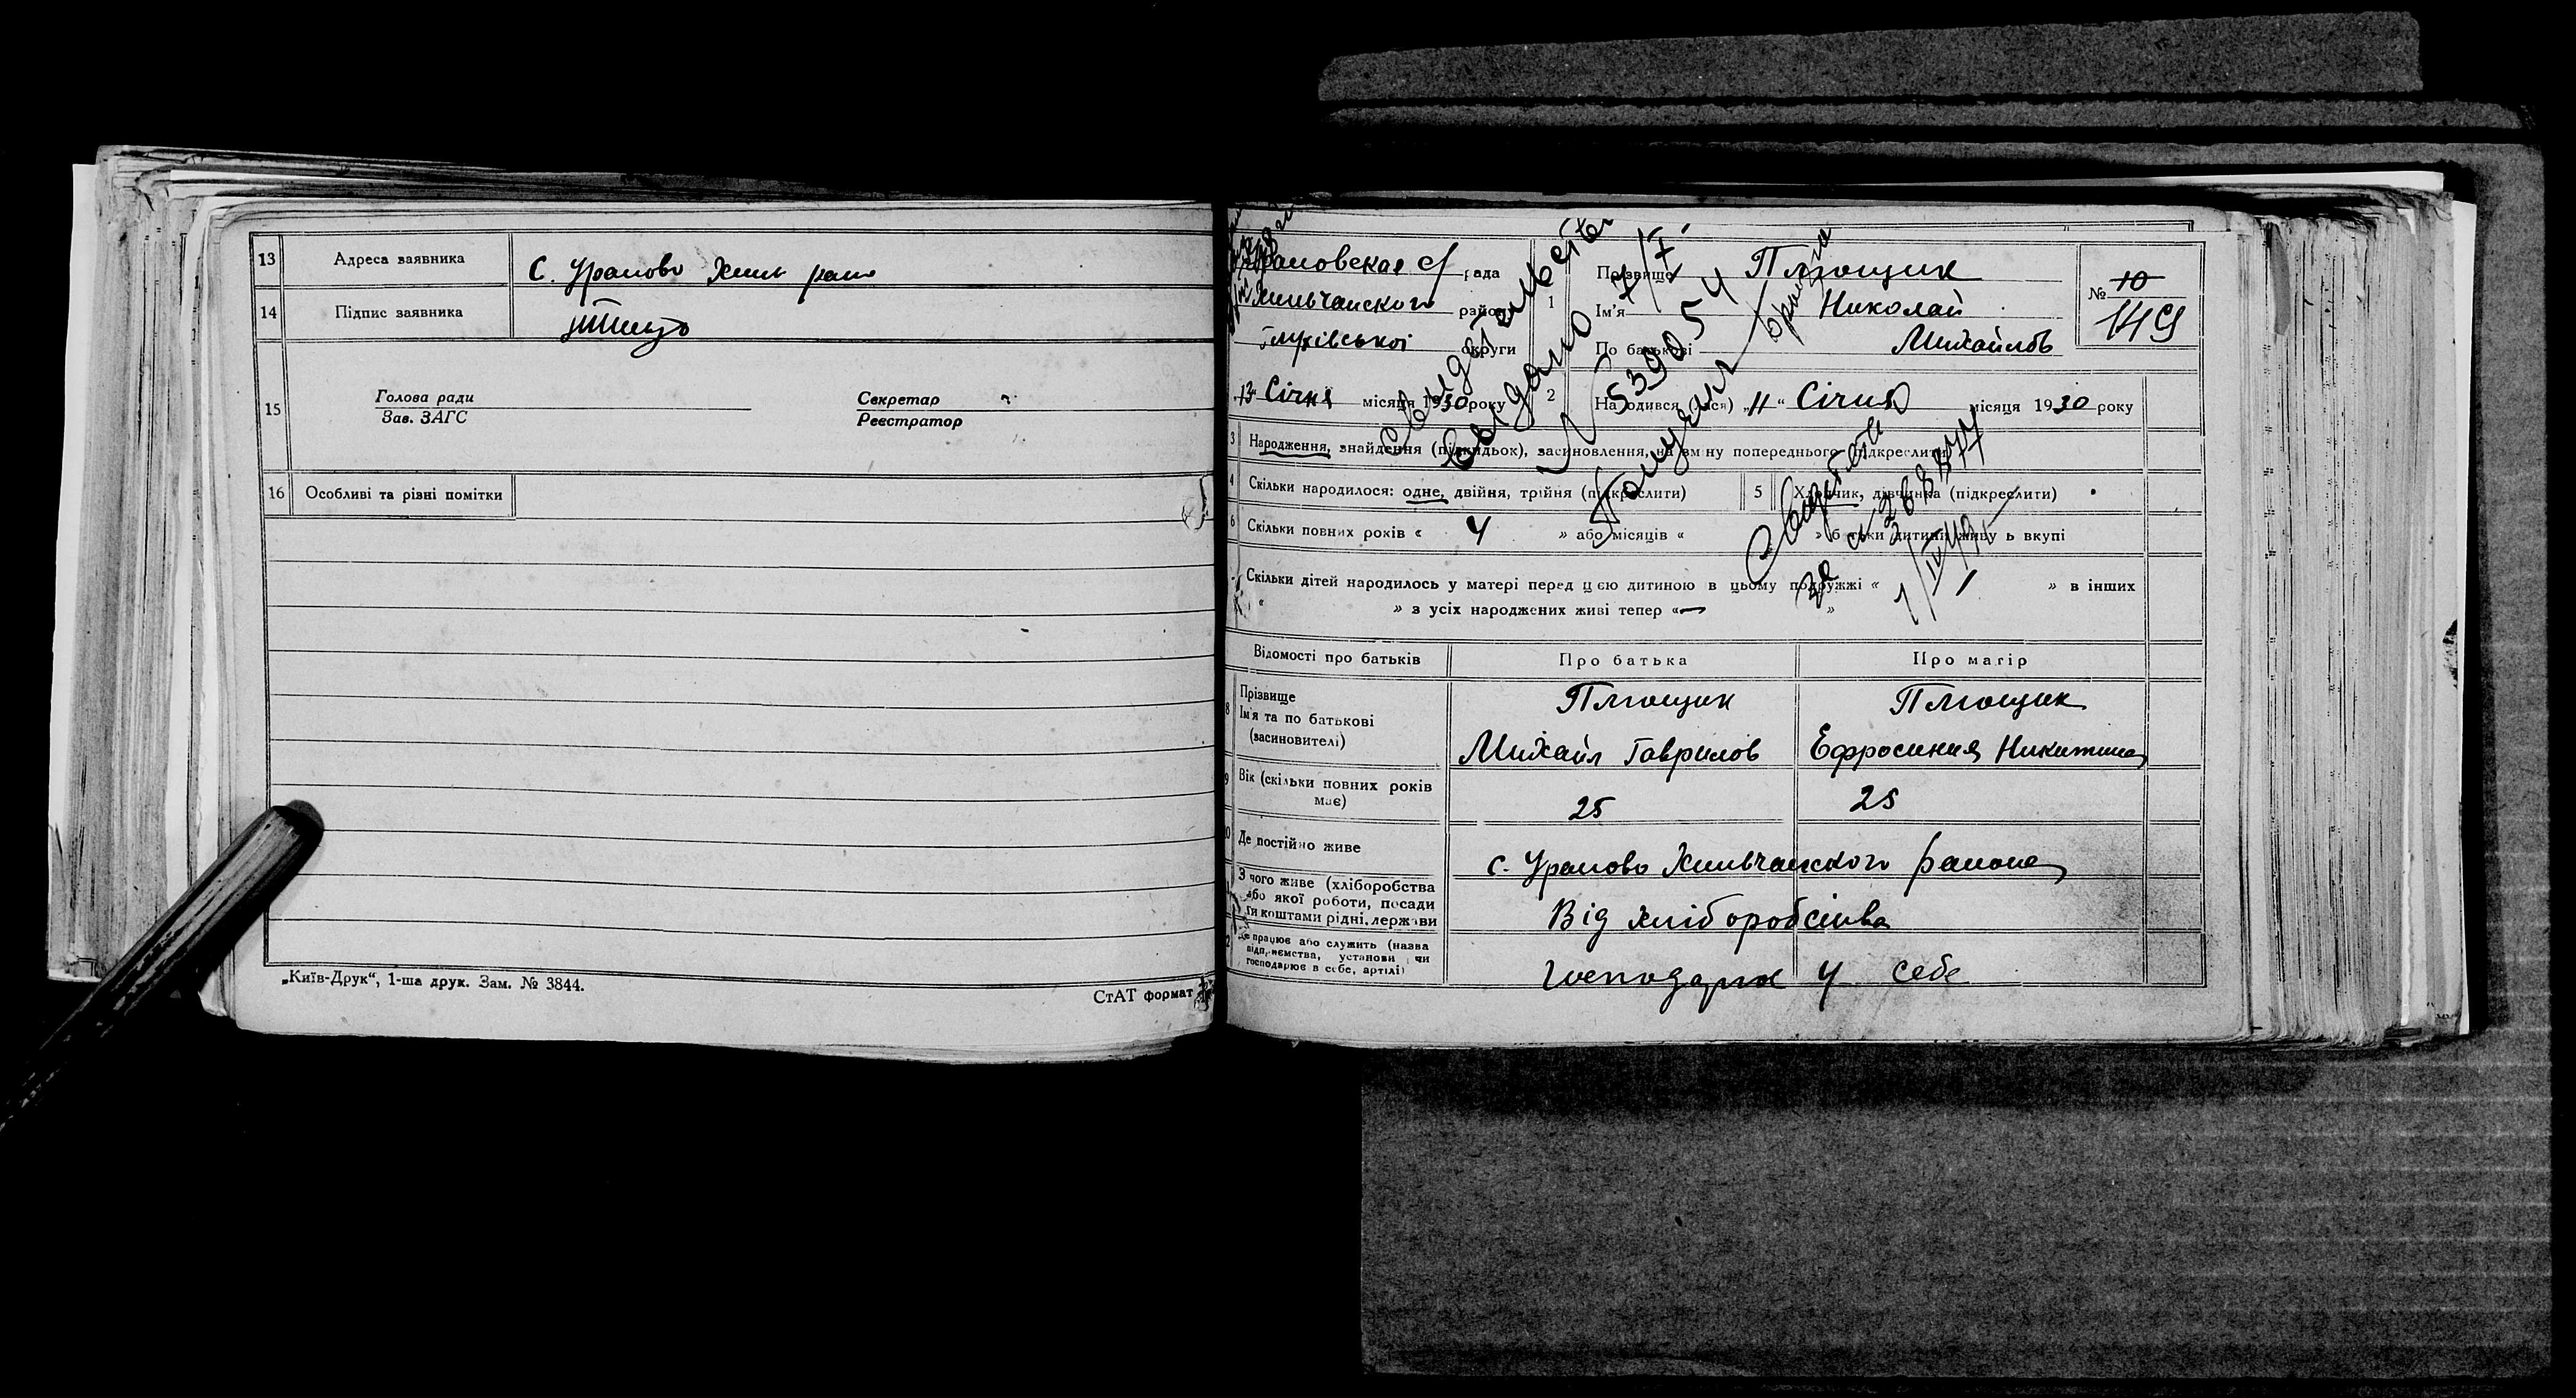 13 Адреса заявника с. Уралово Хиль рано
14 Підпис заявника
15 Голова ради
Зав. ЗАГС
Секретар
Реєстратор
16 Особливі та різні помітки
„Київ-Друк“, 1-ша друк. Зам. № 3844.
СтАТ формат
рада
Хильчанского район
Глухівської округи
„13“ Січня місяця 1930 року
1 Прізвище Плющик
Ім'я Николай
По батькові Михайлов
№ 10
149
2 Народився (лася) „11“ Січня місяця 1930 року
3 Народження, знайдення (підкидьок), засиновлення, на зміну попереднього підкреслити
4 Скільки народилося: одне, двійня, трійня (підкреслити) 5 Хлопчик, дівчинка (підкреслити)
6 Скільки повних років « 4 » або місяців « » батьки дитини живуть вкупі
Скільки дітей народилось у матері перед цією дитиною в цьому подружжі « 1 » в інших
« » з усіх народжених живі тепер «— »
Свидетельство
выдано 7/7
№ 539054
Свидет
за 268877
Відомості про батьків Про батька Про матір
8 Прізвище Плющик Плющик
Ім'я та по батькові
(засиновителі) Михайл Гаврилов Ефросиния Никитина
9 Вік (скільки повних років
має) 25 25
10 Де постійно живе с. Уралово Хильчанского района
З чого живе (хліборобства
або якої роботи, посади
чи коштами рідні, держави Від хліборобства
Де працює або служить (назва
підприємства, установи чи
господарює в себе, артілі) Господарює у себе